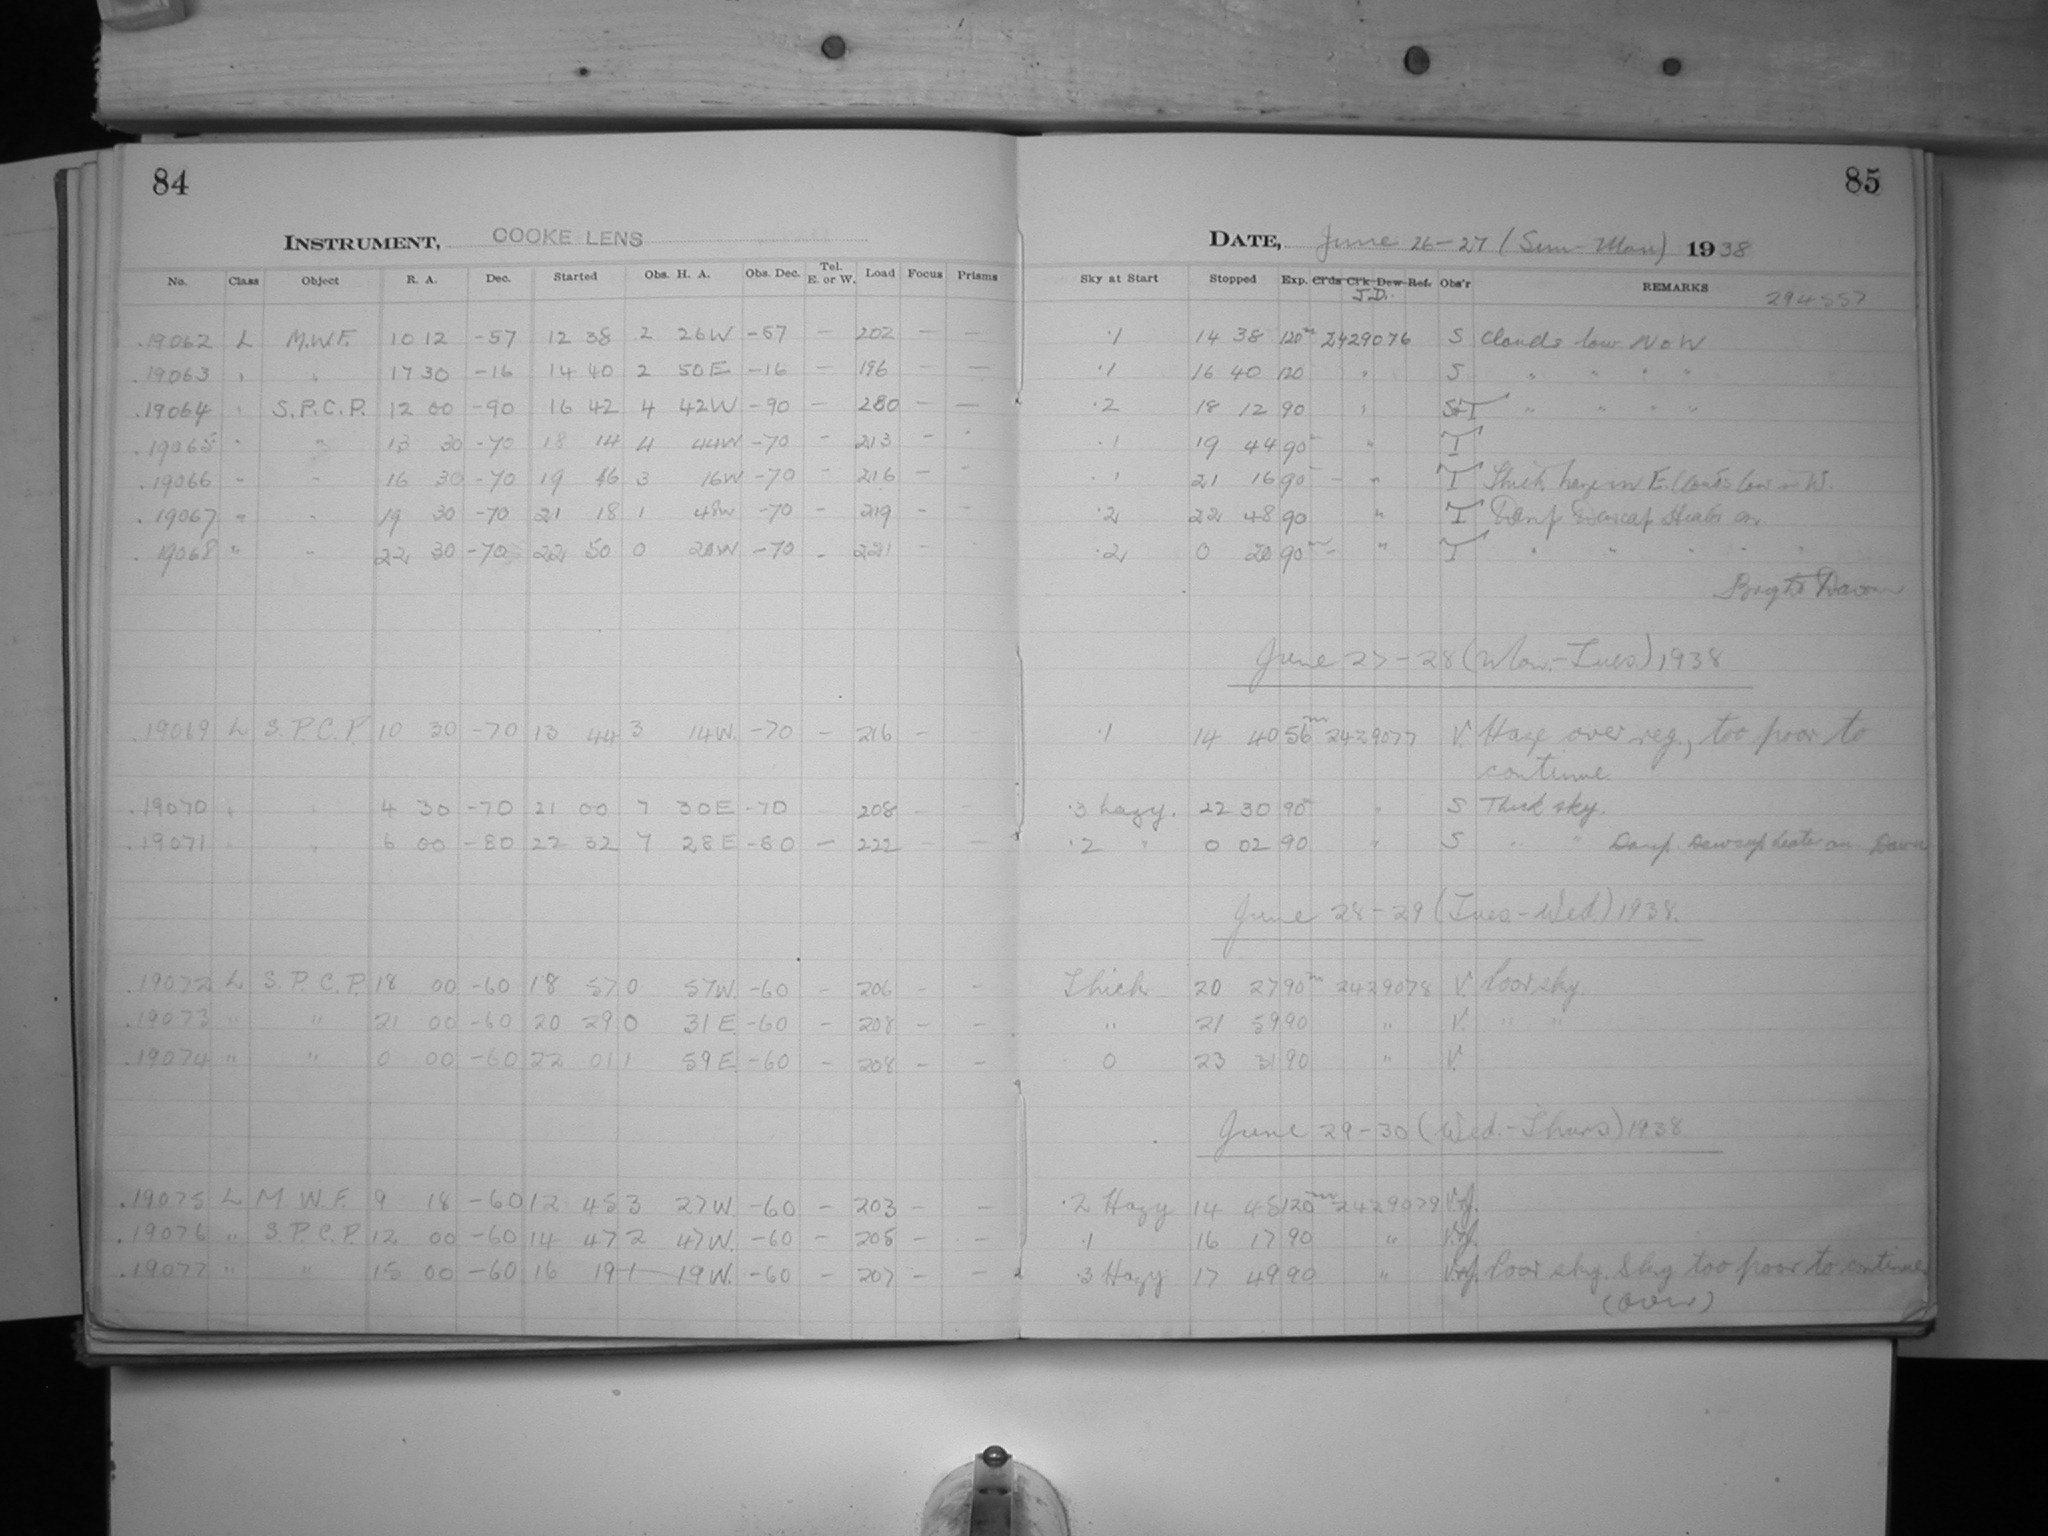 84
INSTRUMENT, COOKE LENS
No. Class Object R. A. Dec. Started Obs. H. A. Obs. Dec. Tel. E. or W. Load Focus Prisms
.19062 L M.W.F. 10 12 -57 12 38 2 26W -57 - 202 - -
.19063 " " 17 30 -16 14 40 2 50E -16 - 196 - -
.19064 " S.P.C.P. 12 00 -90 16 42 4 42W -90 - 280 - -
.19065 " " 13 30 -70 18 14 4 44W -70 - 213 - -
.19066 " " 16 30 -70 19 46 3 16W -70 - 216 - -
.19067 " " 19 30 -70 21 18 1 48W -70 - 219 - -
.19068 " " 22 30 -70 22 50 0 20W -70 - 221 - -
.19069 L S.P.C.P. 10 30 -70 13 44 3 14W. -70 - 216 - -
.19070 " " 4 30 -70 21 00 7 30E -70 208 - -
.19071 " " 6 00 -80 22 32 7 28E -80 - 222 - -
.19072 L S.P.C.P. 18 00 -60 18 57 0 57W. -60 - 206 - -
.19073 " " 21 00 -60 20 29 0 31E -60 - 208 - -
.19074 " " 0 00 -60 22 01 1 59E -60 - 208 - -
.19075 L M.W.F. 9 18 -60 12 45 3 27W. -60 - 203 - -
.19076 " S.P.C.P. 12 00 -60 14 47 2 47W. -60 - 205 - -
.19077 " " 15 00 -60 16 19 1 19W. -60 - 207 - -
85
DATE, June 26-27 (Sun-Mon) 1938
Sky at Start Stopped Exp. Cr'ds Cl'k Dew Ref. Obs'r REMARKS
J.D. 294557
.1 14 38 120m 2429076 S Clouds low N o W
.1 16 40 120 " S " " " "
.2 18 12 90 " S+T " " " "
.1 19 44 90 " T
.1 21 16 90 - " T Thick haze in E. Clouds low in W.
.2 22 48 90 " T Damp Dewcap Heater on
.2 0 20 90m - " T " " " " "
Bright Dawn
June 27-28 (Mon.-Tues.) 1938
.1 14 40 56m 2429077 V. Haze over reg., too poor to
continue.
.3 hazy. 22 30 90m " S Thick sky.
.2 " 0 02 90 " S " " Damp. Dewcap heater on. Dawn
June 28-29 (Tues-Wed.) 1938.
Thick 20 27 90m 2429078 V. Poor sky.
" 21 59 90 " V. " "
0 23 31 90 " V.
June 29-30 (Wed.-Thurs) 1938
.2 Hazy 14 45 120m 2429079
.1 16 17 90 "
.3 Hazy 17 49 90 " Poor sky. Sky too poor to continue
(over)